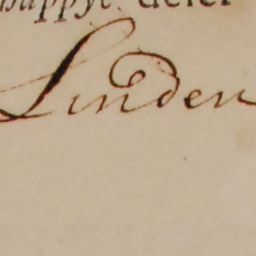 happye deser
Linden